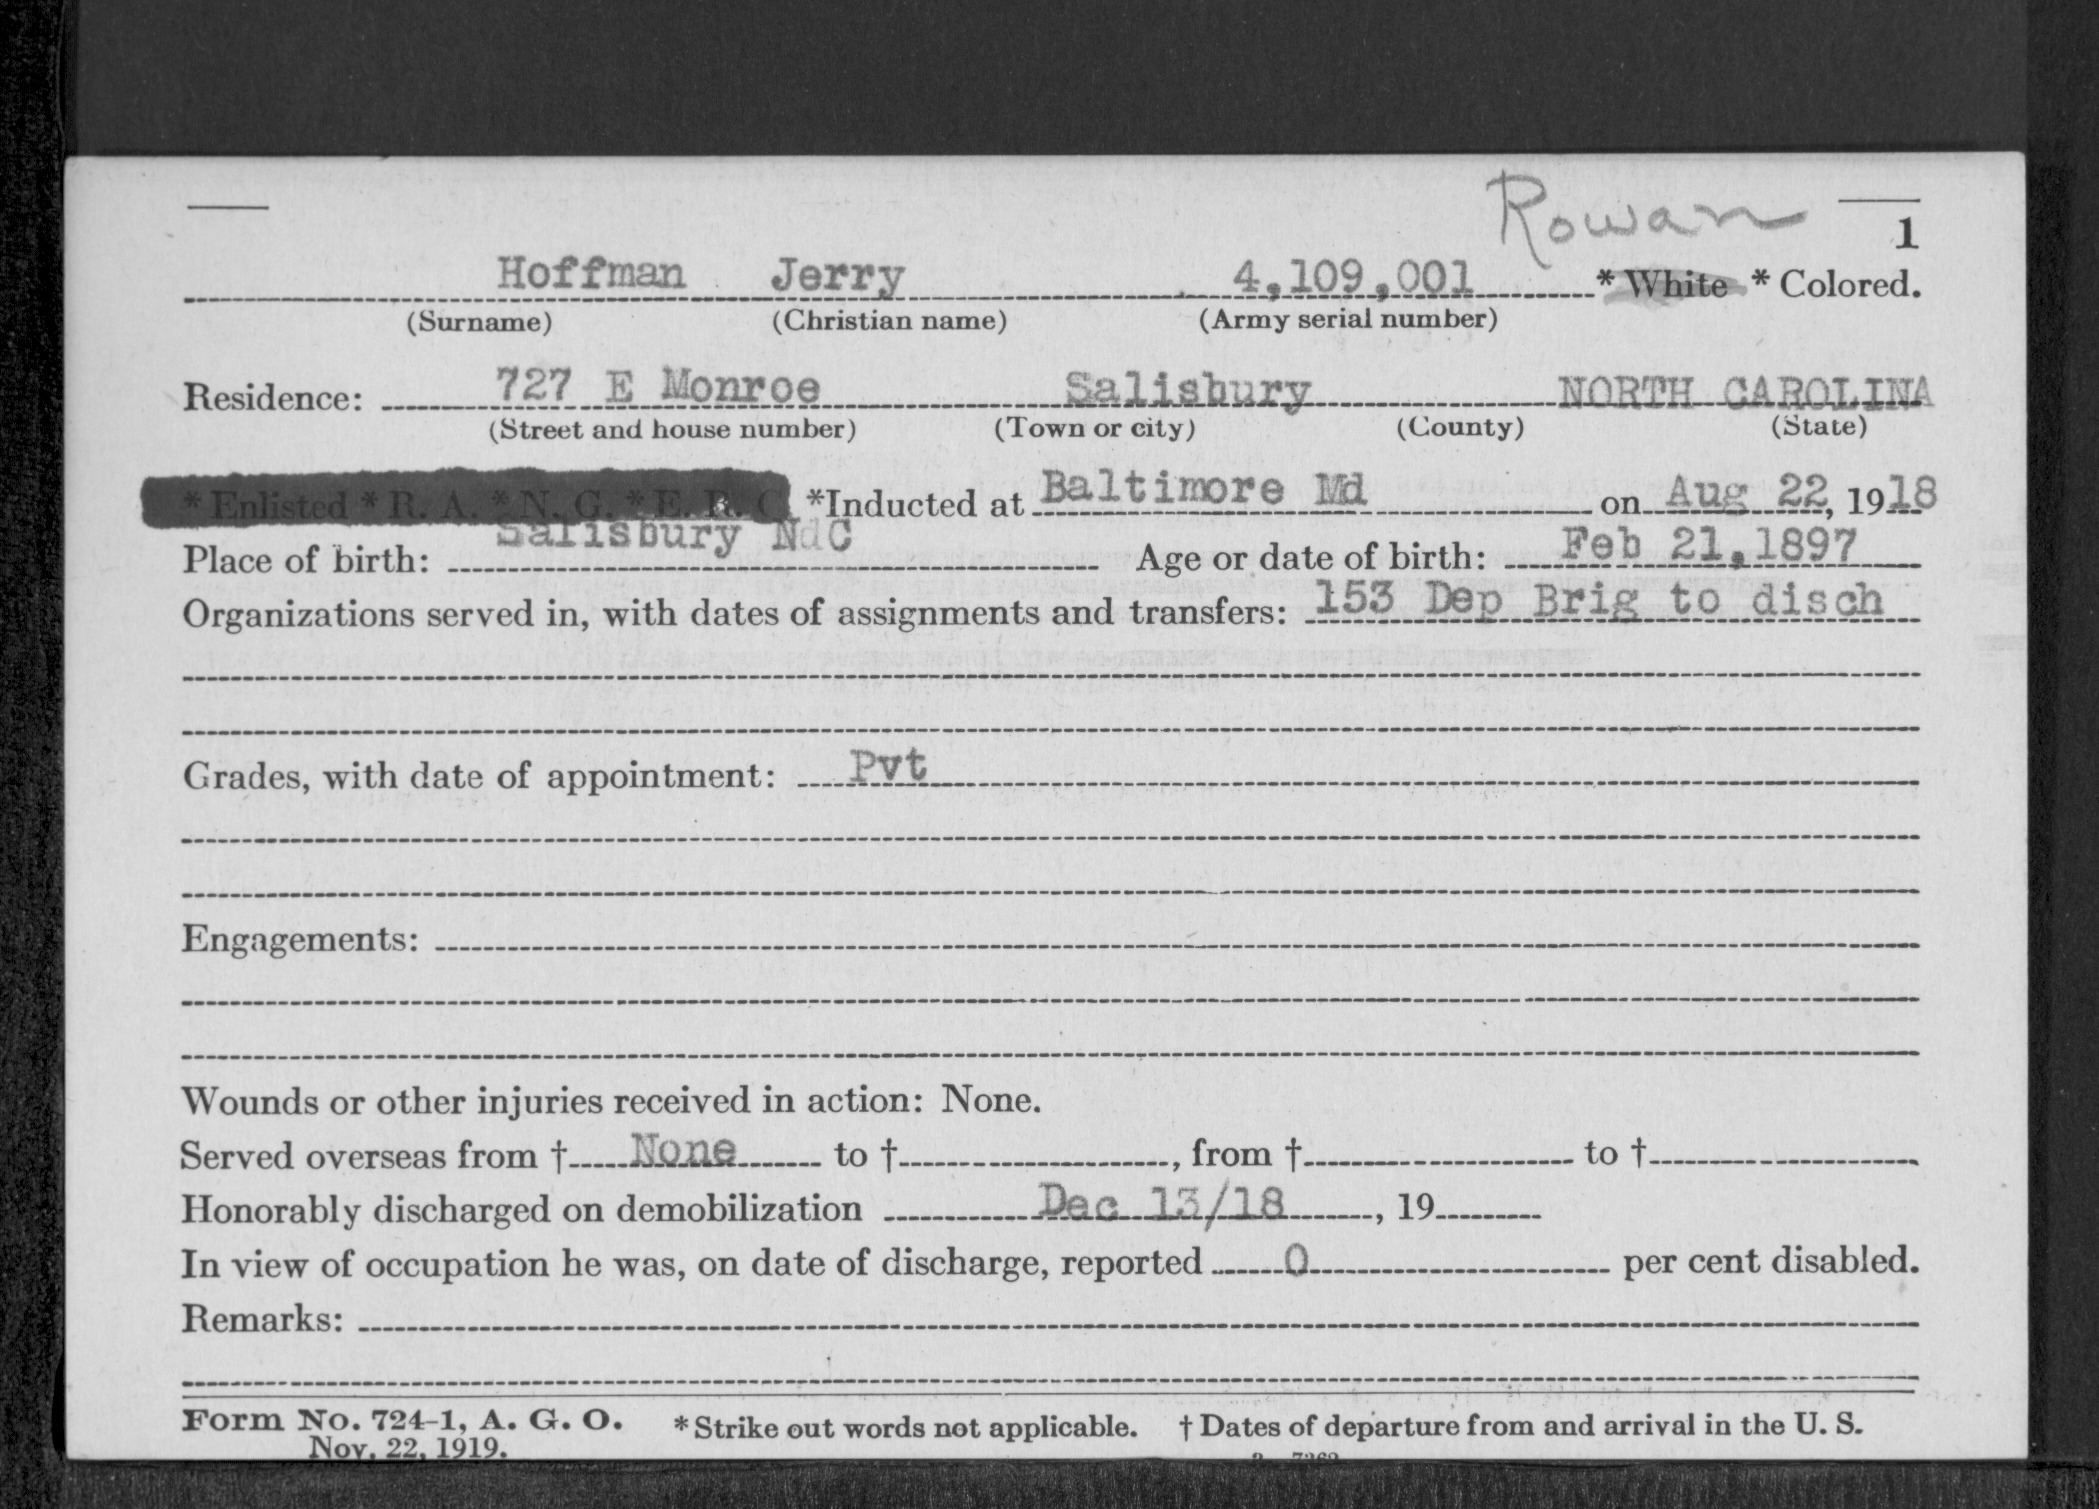 Rowan
1
Hoffman Jerry 4,109,001 * White * Colored.
(Surname) (Christian name) (Army serial number)
Residence: 727 E Monroe Salisbury NORTH CAROLINA
(Street and house number) (Town or city) (County) (State)
* Enlisted * R. A. * N. G. * E. R. C. *Inducted at Baltimore Md on Aug 22, 1918
Place of birth: Salisbury NdC Age or date of birth: Feb 21,1897
Organizations served in, with dates of assignments and transfers: 153 Dep Brig to disch
Grades, with date of appointment: Pvt
Engagements:
Wounds or other injuries received in action: None.
Served overseas from † None to †, from † to †
Honorably discharged on demobilization Dec 13/18, 19
In view of occupation he was, on date of discharge, reported 0 per cent disabled.
Remarks:
Form No. 724-1, A. G. O. * Strike out words not applicable. † Dates of departure from and arrival in the U. S.
Nov. 22, 1919.